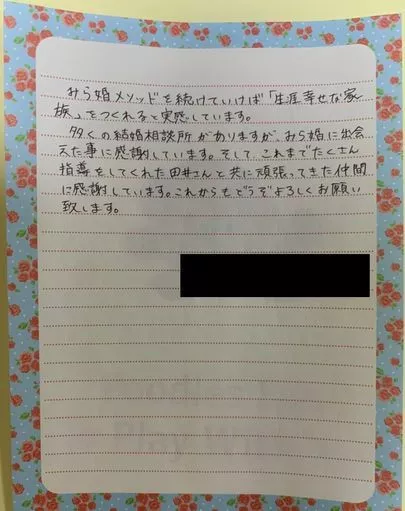 みら婚メソッドを続けていけば「生涯幸せな家
族」をつくれると実感しています。
多くの結婚相談所がありますが、みら婚に出会
えた事に感謝しています。そして、これまでたくさん
指導をしてくれた田井さんと共に頑張ってきた仲間
に感謝しています。これからもどうぞよろしくお願い
致します。